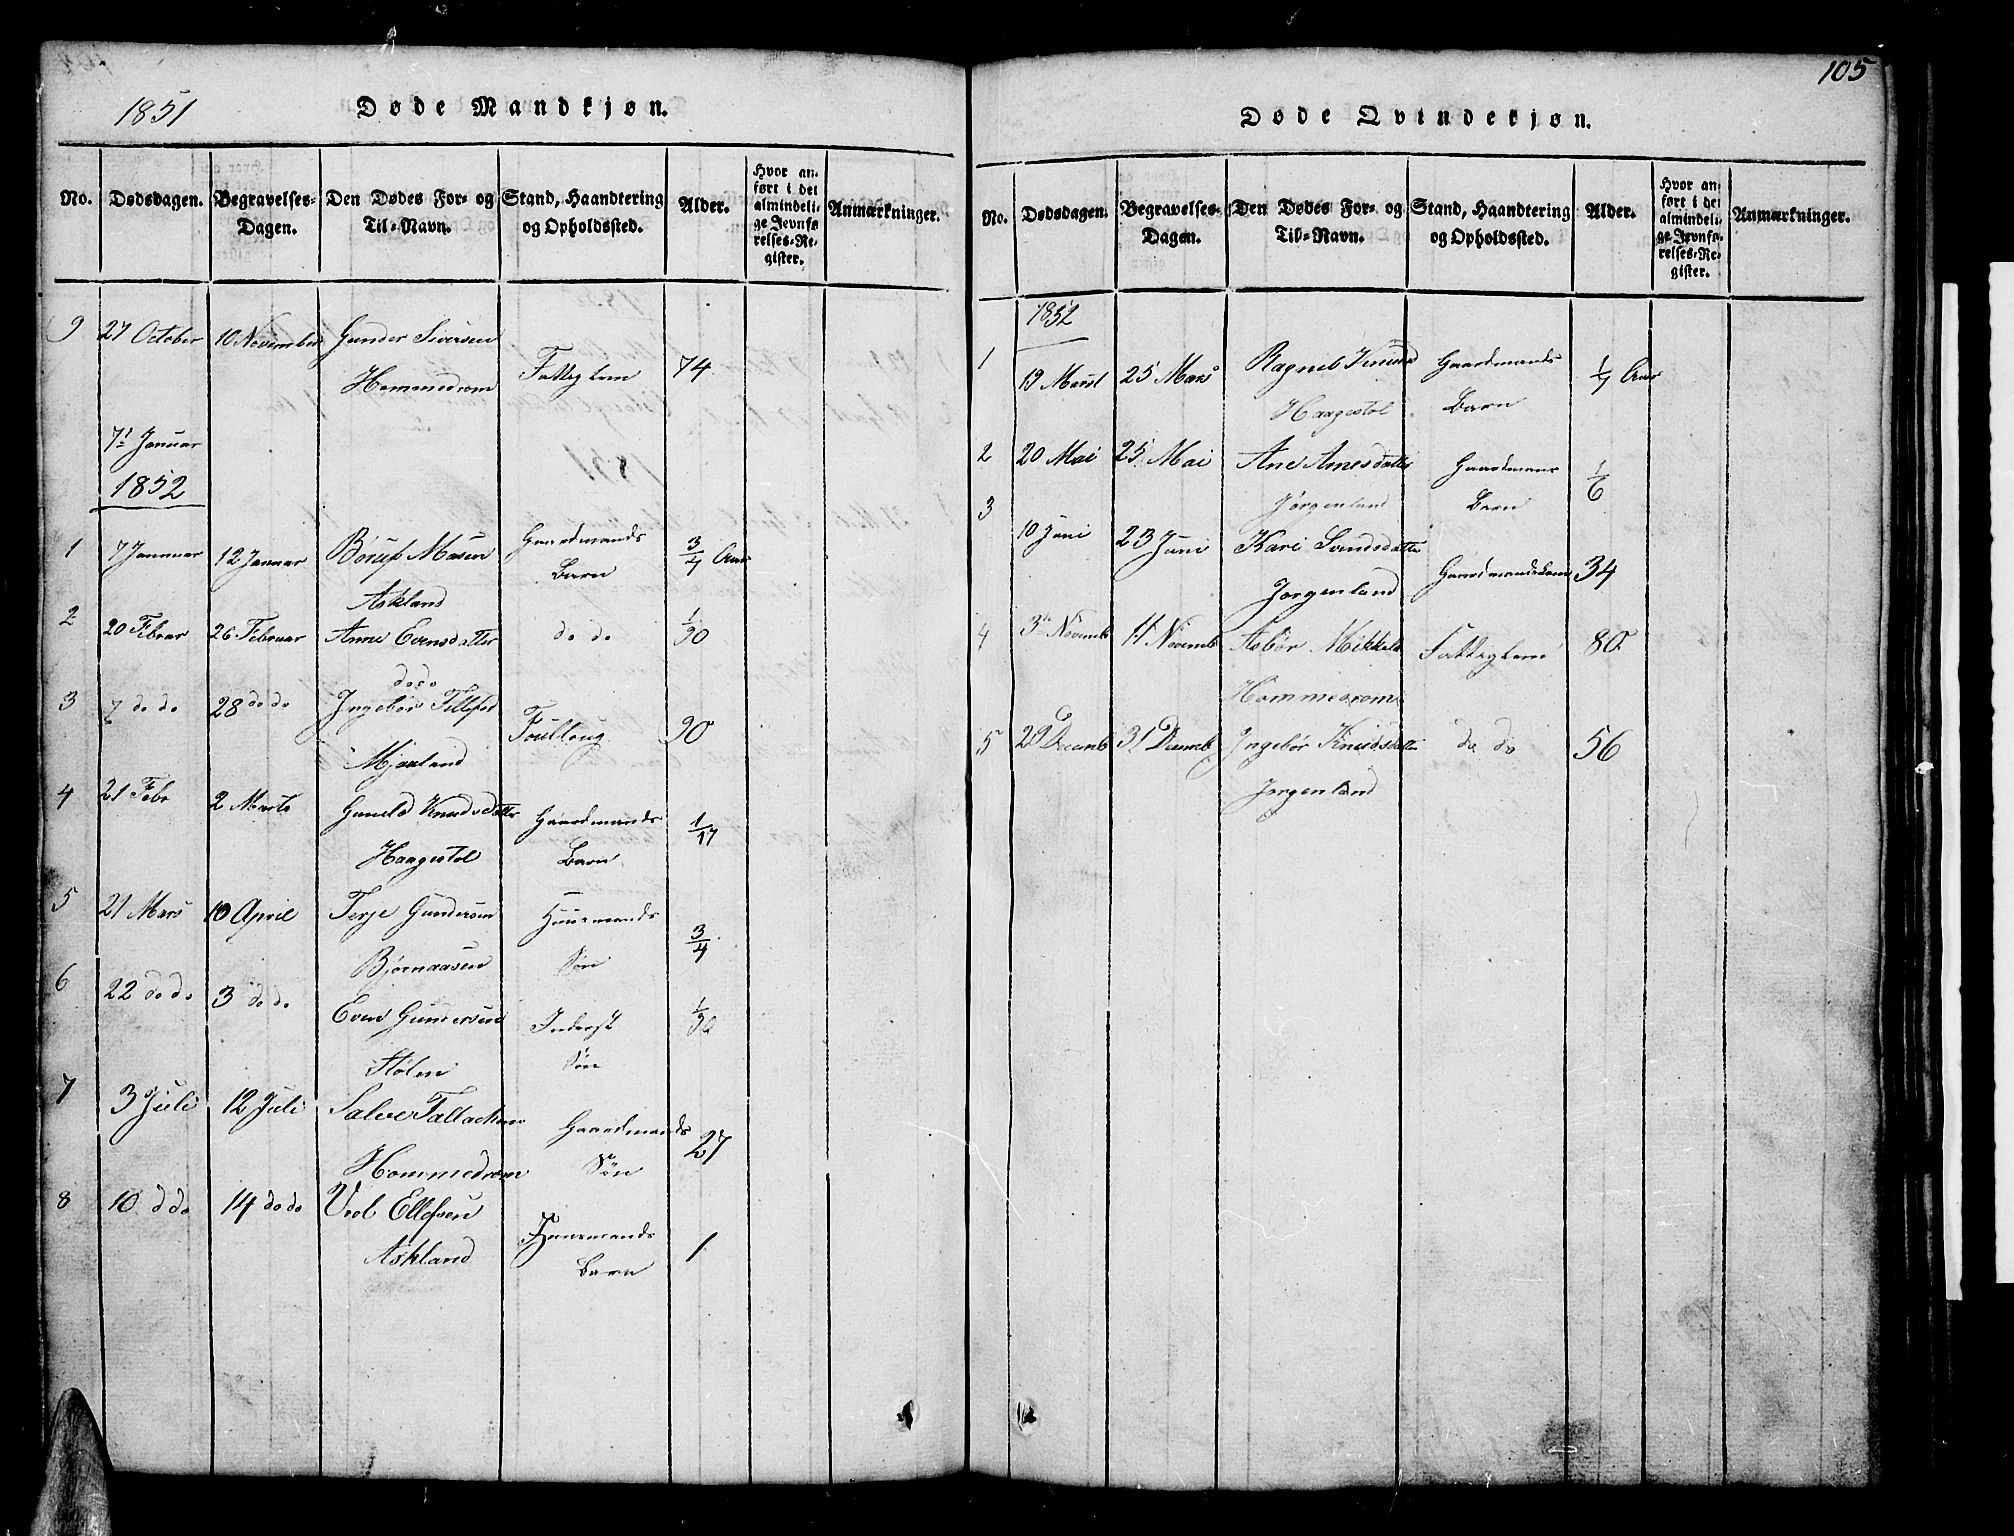 105
1851
Døde Mandkjøn.
No. Dødsdagen. Begravelses-Dagen. Den Dødes For- og Til-Navn. Stand, Haandtering og Opholdssted. Alder. Hvor anført i det almindelige Jevnførelses-Register. Anmærkninger.
9 27 October 10 November Gunder Siversen
Hommedrom Fattiglem 74
7 Januar
1852
1 7 Januar 12 Januar Gaardmands 3/4 Aar
Askland Barn
2 20 Febrar 26 Februar Anne Evensdatter do do
do do
3 do do 28 do do Ingebør 90
Mjaaland
4 21 Febr 2 Marts Knudsdatter Gaardmands 1/17
Haagestol Barn
5 21 Mars 10 April Terje Gundersen Huusmands 3/4
Bjørnaasen Søn
6 22 do do 3 do do Even Gundersen
Stølen Søn
7 3 Juli 12 Juli Salve Tallaksen Gaardmands 27
Hommedrom Søn
8 10 do do 14 do do Ellefsen Huusmands 1
Askland Barn
Døde Qvindekjøn.
No. Dødsdagen. Begravelses-Dagen. Den Dødes For- og Til-Navn. Stand, Haandtering og Opholdssted. Alder. Hvor anført i det almindelige Jevnførelses-Register. Anmærkninger.
1852
1 19 Marst 25 Mars Gaardmands 1/7 Aar
Haagestol Barn
2 20 Mai 25 Mai Ane Arnesdatter Gaardmans 1/6
Jørgenland Barn
3 10 Juni 23 Juni Kari Svendsdatter
Jorgenland 34
4 3 Novemb 11 Novemb Asbør Mikkels Fattiglem 80
Hommedrom
5 29 Decemb 31 Decemb Ingebør Knudsdatter do do 56
Jorgenland